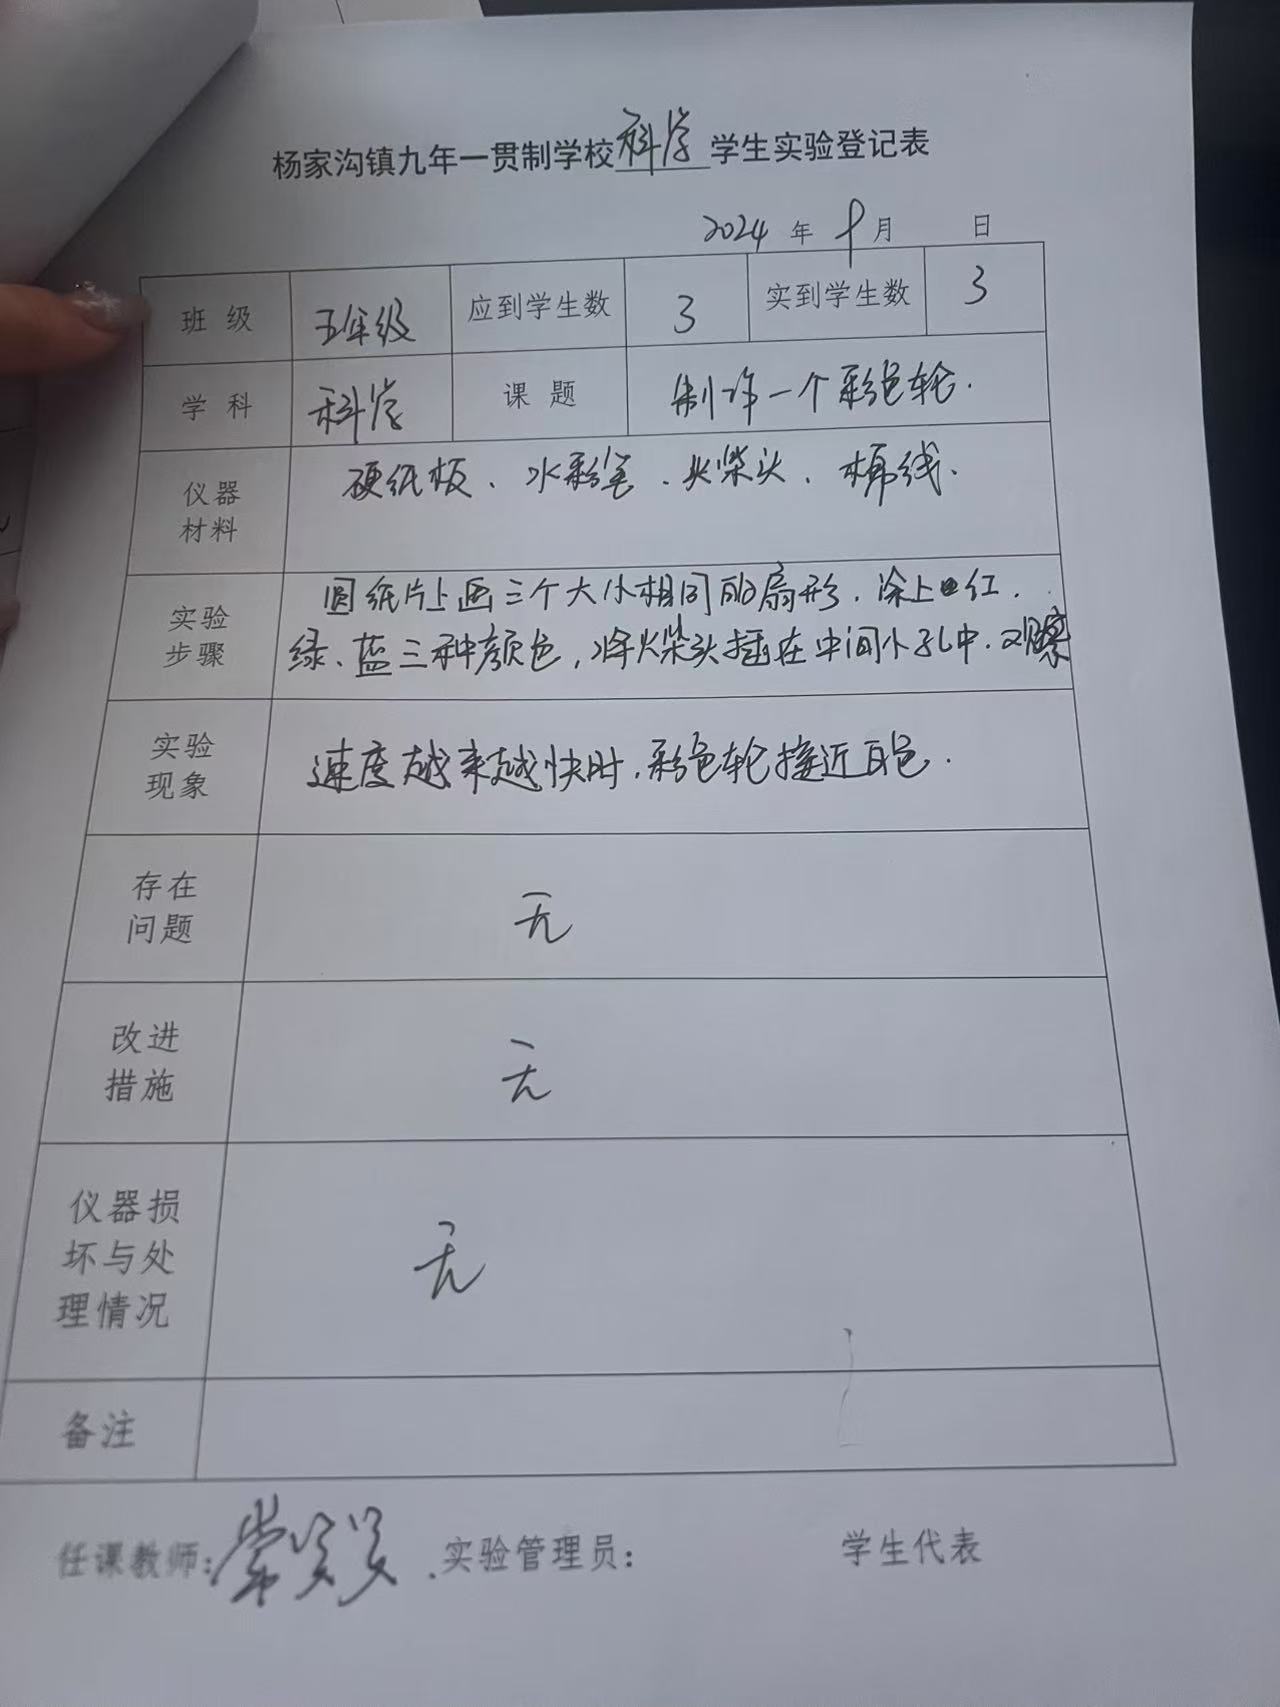 杨家沟镇九年一贯制学校科学学生实验登记表
2024 年 9 月 日
班级 五年级 应到学生数 3 实到学生数 3
学科 科学 课题 制作一个彩色轮.
仪器
材料
硬纸板、水彩笔、火柴头、棉线.
实验
步骤
圆纸片上画三个大小相同的扇形.涂上红.
绿、蓝三种颜色,将火柴头插在中间小孔中.观察
实验
现象
速度越来越快时.彩色轮接近白色.
存在
问题
无
改进
措施
无
仪器损
坏与处
理情况
无
备注
任课教师: 实验管理员: 学生代表